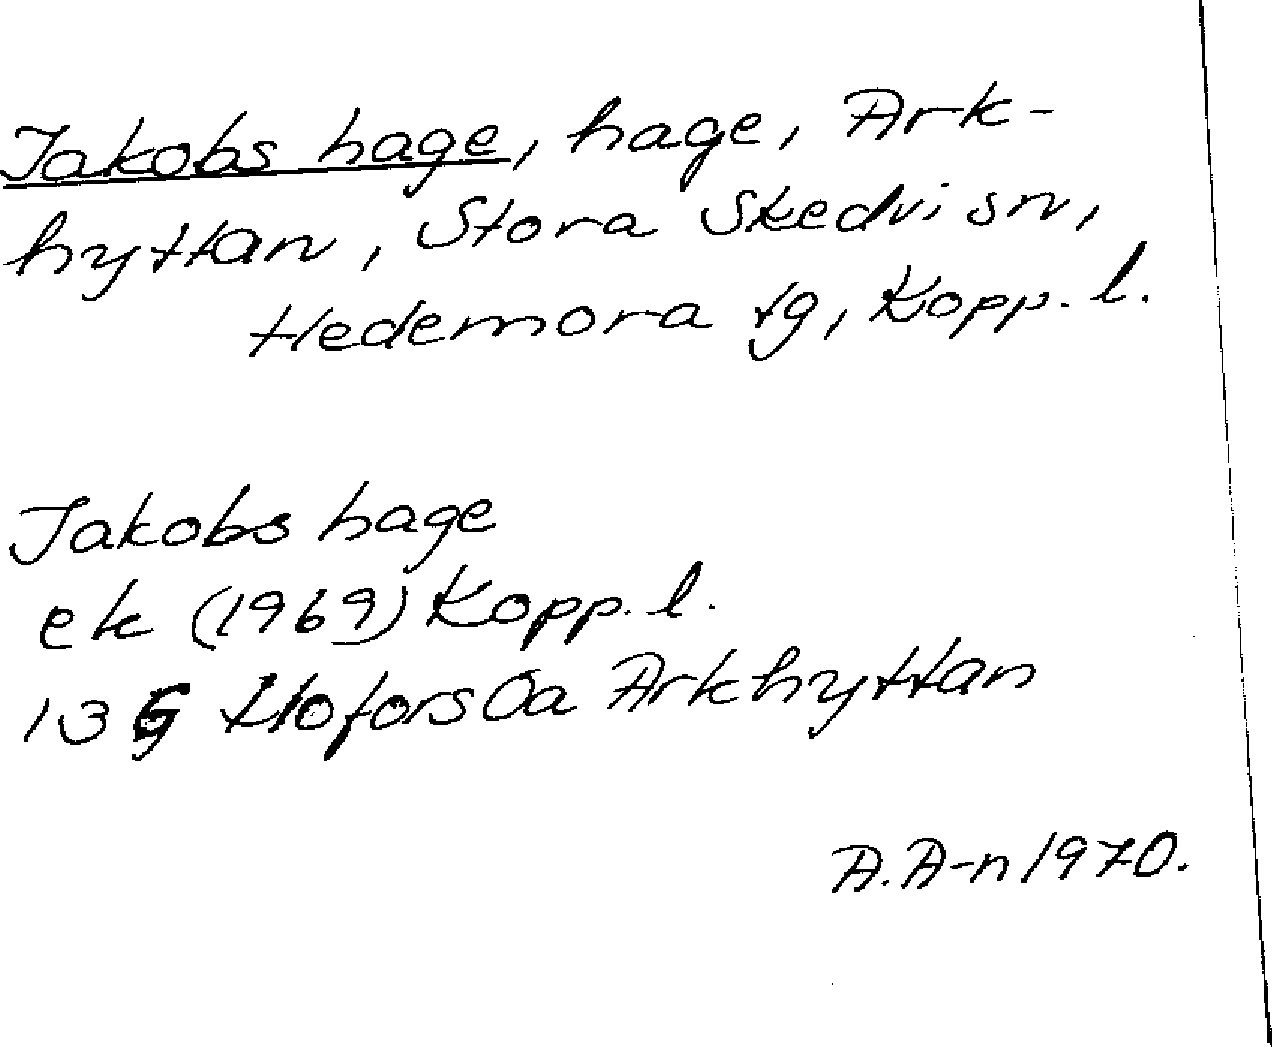 Jakobs hage, hage, Ark-
hyttan, Stora Skedvi sn,
Hedemora tg, Kopp. l.
Jakobs hage
ek (1969) Kopp. l.
13 G Hofors 0a Arkhyttan
A. A-n 1970.